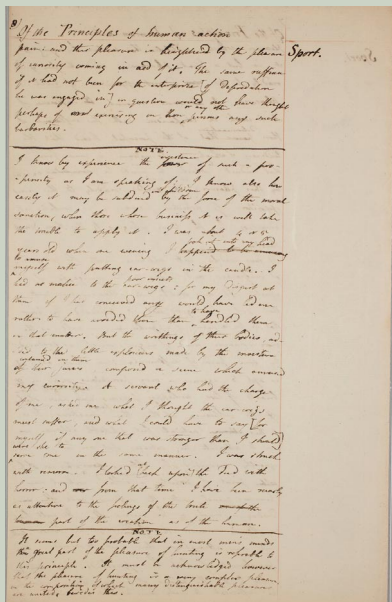 Of the Principles of human action
Sport.
pain: and this pleasure is heightened by the pleasure
of curiosity coming in aid of it. The same ruffian
if it had not been for the enterprize of Depredation
he was engaged in in question would not have thought
perhaps of exercising on their or any other persons any such
barbarities.
NOTE.
I know by experience the existence of such a pro-
pensity as I am speaking of: I know also how
easily it may be subdued by the force of the moral
sanction, when those whose business it is will take
the trouble to apply it. I was about 4 or 5
years old when one evening I took it into my head
to amuse myself with putting ear-wigs in the candle. I
had no malice to the poor animals: for my disgust at
them if I had conceived any would have led me
rather to have avoided them than to have handled them
in that matter. But the writhings of their bodies, ad-
ded to the little explosions made by the moisture
contained in them
of their juices composed a scene which amused
my curiosity. A servant who had the charge
of me asked me what I thought the ear-wigs
must suffer, and what I could have to say for
myself if any one that was stronger than I should
serve me in the same manner. I was struck
with remorse. I looked back upon the Deed with
horror: and from that time I have been nearly
as attentive to the feelings of the brute
part of the creation as of the human.
NOTE
It seems but too probable that in most men's minds
great part of the pleasure of hunting is referable to
this principle. It must be acknowledged however
that the pleasure of hunting is a very complex pleasure,
in the composition of which many distinguishable pleasures
are united besides this.